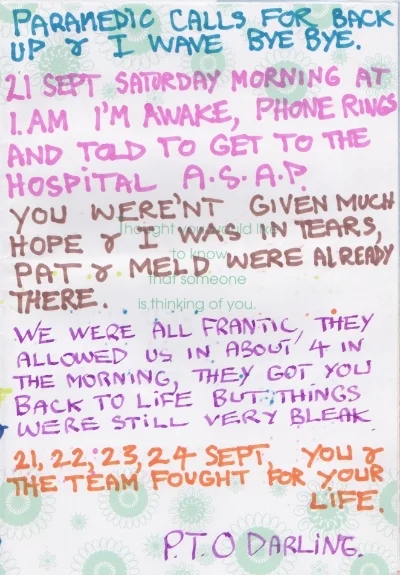 PARAMEDIC CALLS FOR BACK
UP & I WAVE BYE BYE.
21 SEPT SATURDAY MORNING AT
1.AM I'M AWAKE, PHONE RINGS
AND TOLD TO GET TO THE
HOSPITAL A.S.A.P.
YOU WERE'NT GIVEN MUCH
HOPE & I WAS IN TEARS,
PAT & MELD WERE ALREADY
THERE.
Thought you would like
to know
that someone
is thinking of you.
WE WERE ALL FRANTIC, THEY
ALLOWED US IN ABOUT 4 IN
THE MORNING, THEY GOT YOU
BACK TO LIFE BUT THINGS
WERE STILL VERY BLEAK
21, 22, 23, 24 SEPT, YOU &
THE TEAM FOUGHT FOR YOUR
LIFE.
P.T.O DARLING.